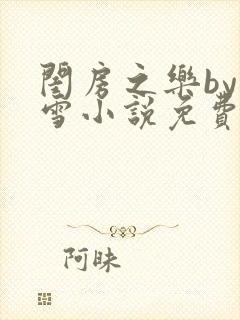 閨房之樂by
雪小說免費
阿昧